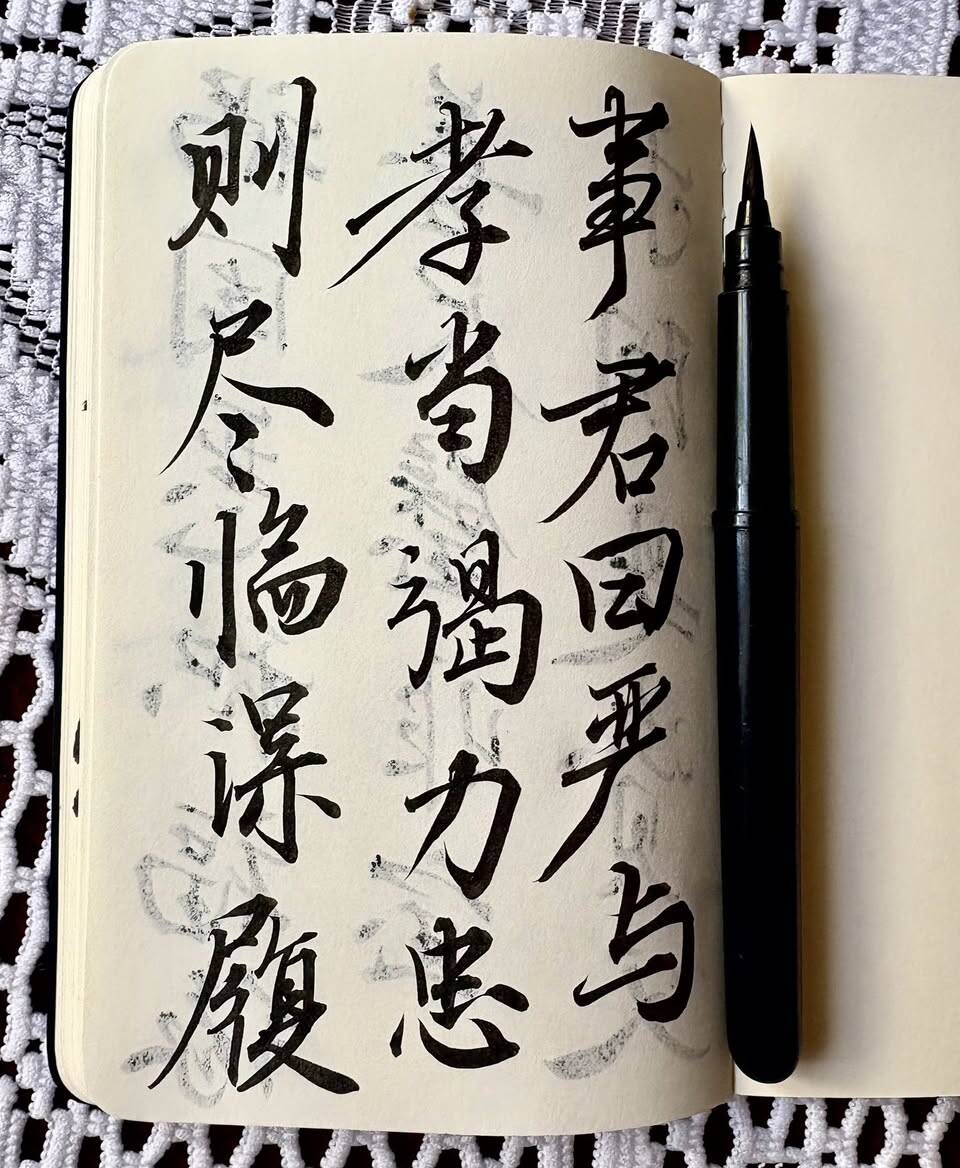 事君曰严与
孝当竭力忠
则尽临深履